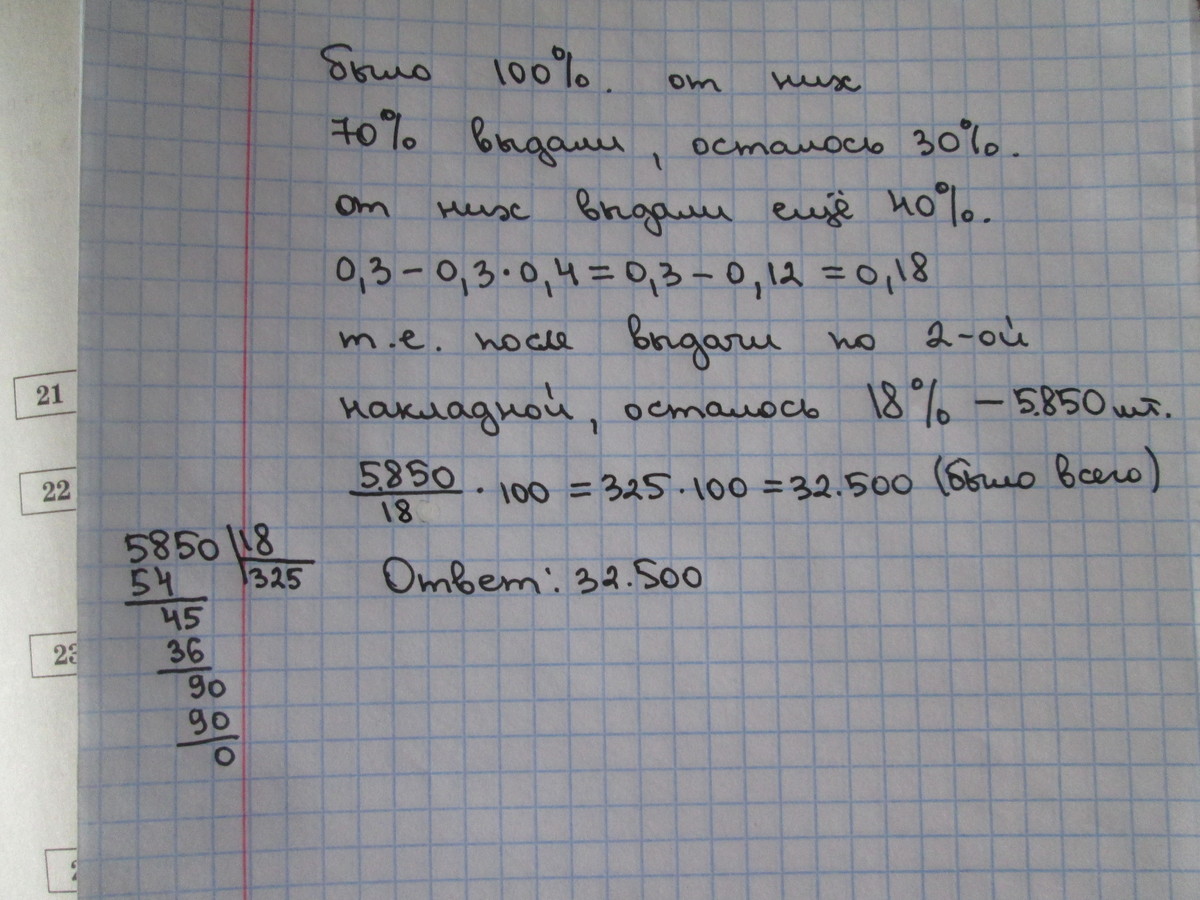 было 100%. от них
70% выдали, осталось 30%.
от них выдали ещё 40%.
0,3 - 0,3·0,4 = 0,3 - 0,12 = 0,18
т.е. после выдачи по 2-ой
накладной, осталось 18% - 5.850 шт.
5.850
18
· 100 = 325·100 = 32.500 (было всего)
Ответ: 32.500
5850 18
54 325
45
36
90
90
0
21
22
23
2